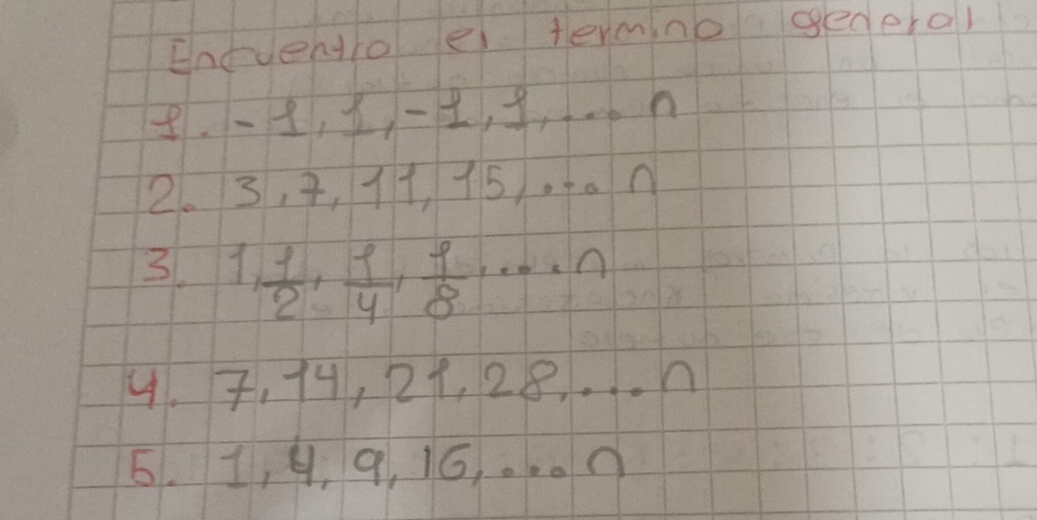 Encuentra el termino general
1. -1, 1, -1, 1, .... n
2. 3, 7, 11, 15, .... n
3. 1, 1/2, 1/4, 1/8, .... n
4. 7, 14, 21, 28, .... n
5. 1, 4, 9, 16, .... n